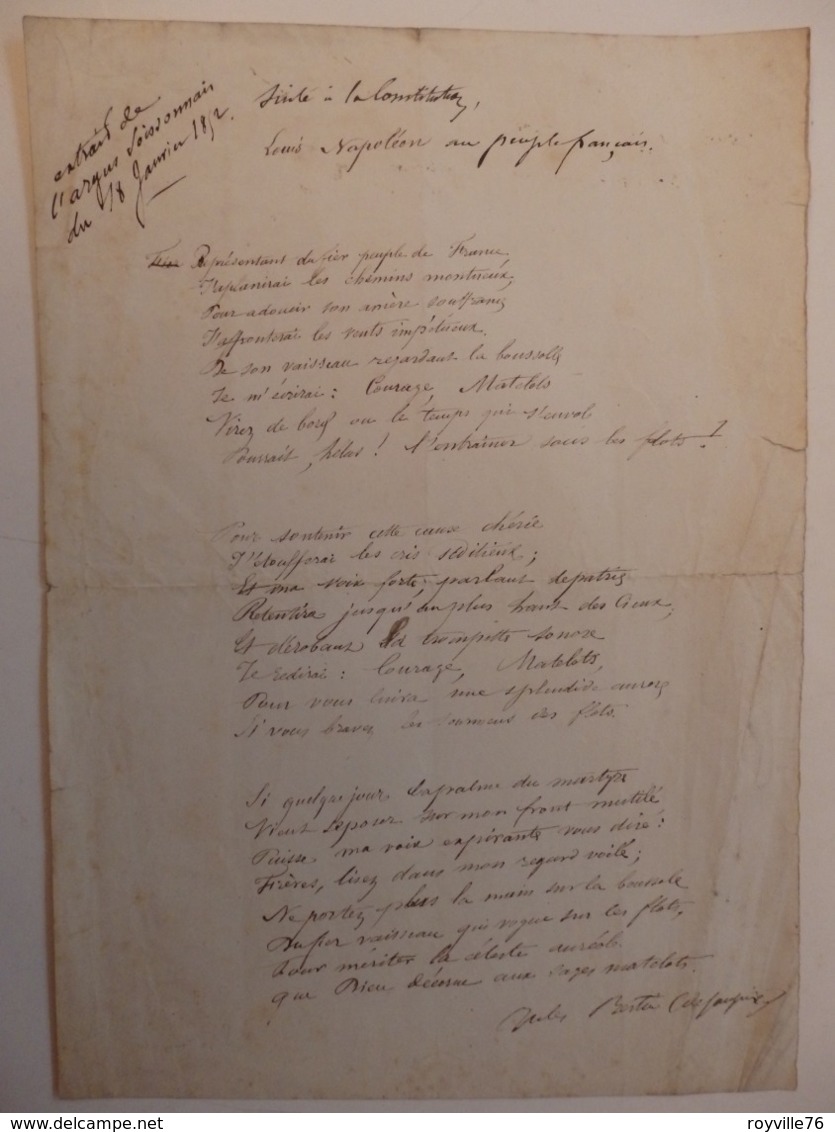 extrait de
l'argus soissonnais
du 18 Janvier 1852.
à la Constitution,
Louis Napoléon au peuple français.
Représentant du fier peuple de France,
J'applanirai les chemins montueux,
Pour adoucir son amère souffrance
J'affronterai les vents impétueux.
De son vaisseau regardant la boussole
Je m'écrirai : Courage, Matelots
Virez de bord ou le temps qui s'envole
Pourrait, hélas ! l'entraîner sous les flots. !
Pour soutenir cette cause chérie
J'étoufferai les cris séditieux ;
Et ma voix forte, parlant de patrie
Retentira jusqu'au plus haut des Cieux,
Et dérobant la trompette sonore
Je redirai : Courage, Matelots,
Pour vous luira une splendide aurore
Si vous bravez les des flots.
Si quelque jour la palme du martyre
Vient reposer sur mon front mutilé
Puisse ma voix expirante vous dire :
Frères, lisez dans mon regard voilé ;
Ne portez plus la main sur la boussole
Du fier vaisseau qui vogue sur les flots,
Pour mériter la céleste auréole
que Dieu décerne aux sages matelots.
Jules
royville76